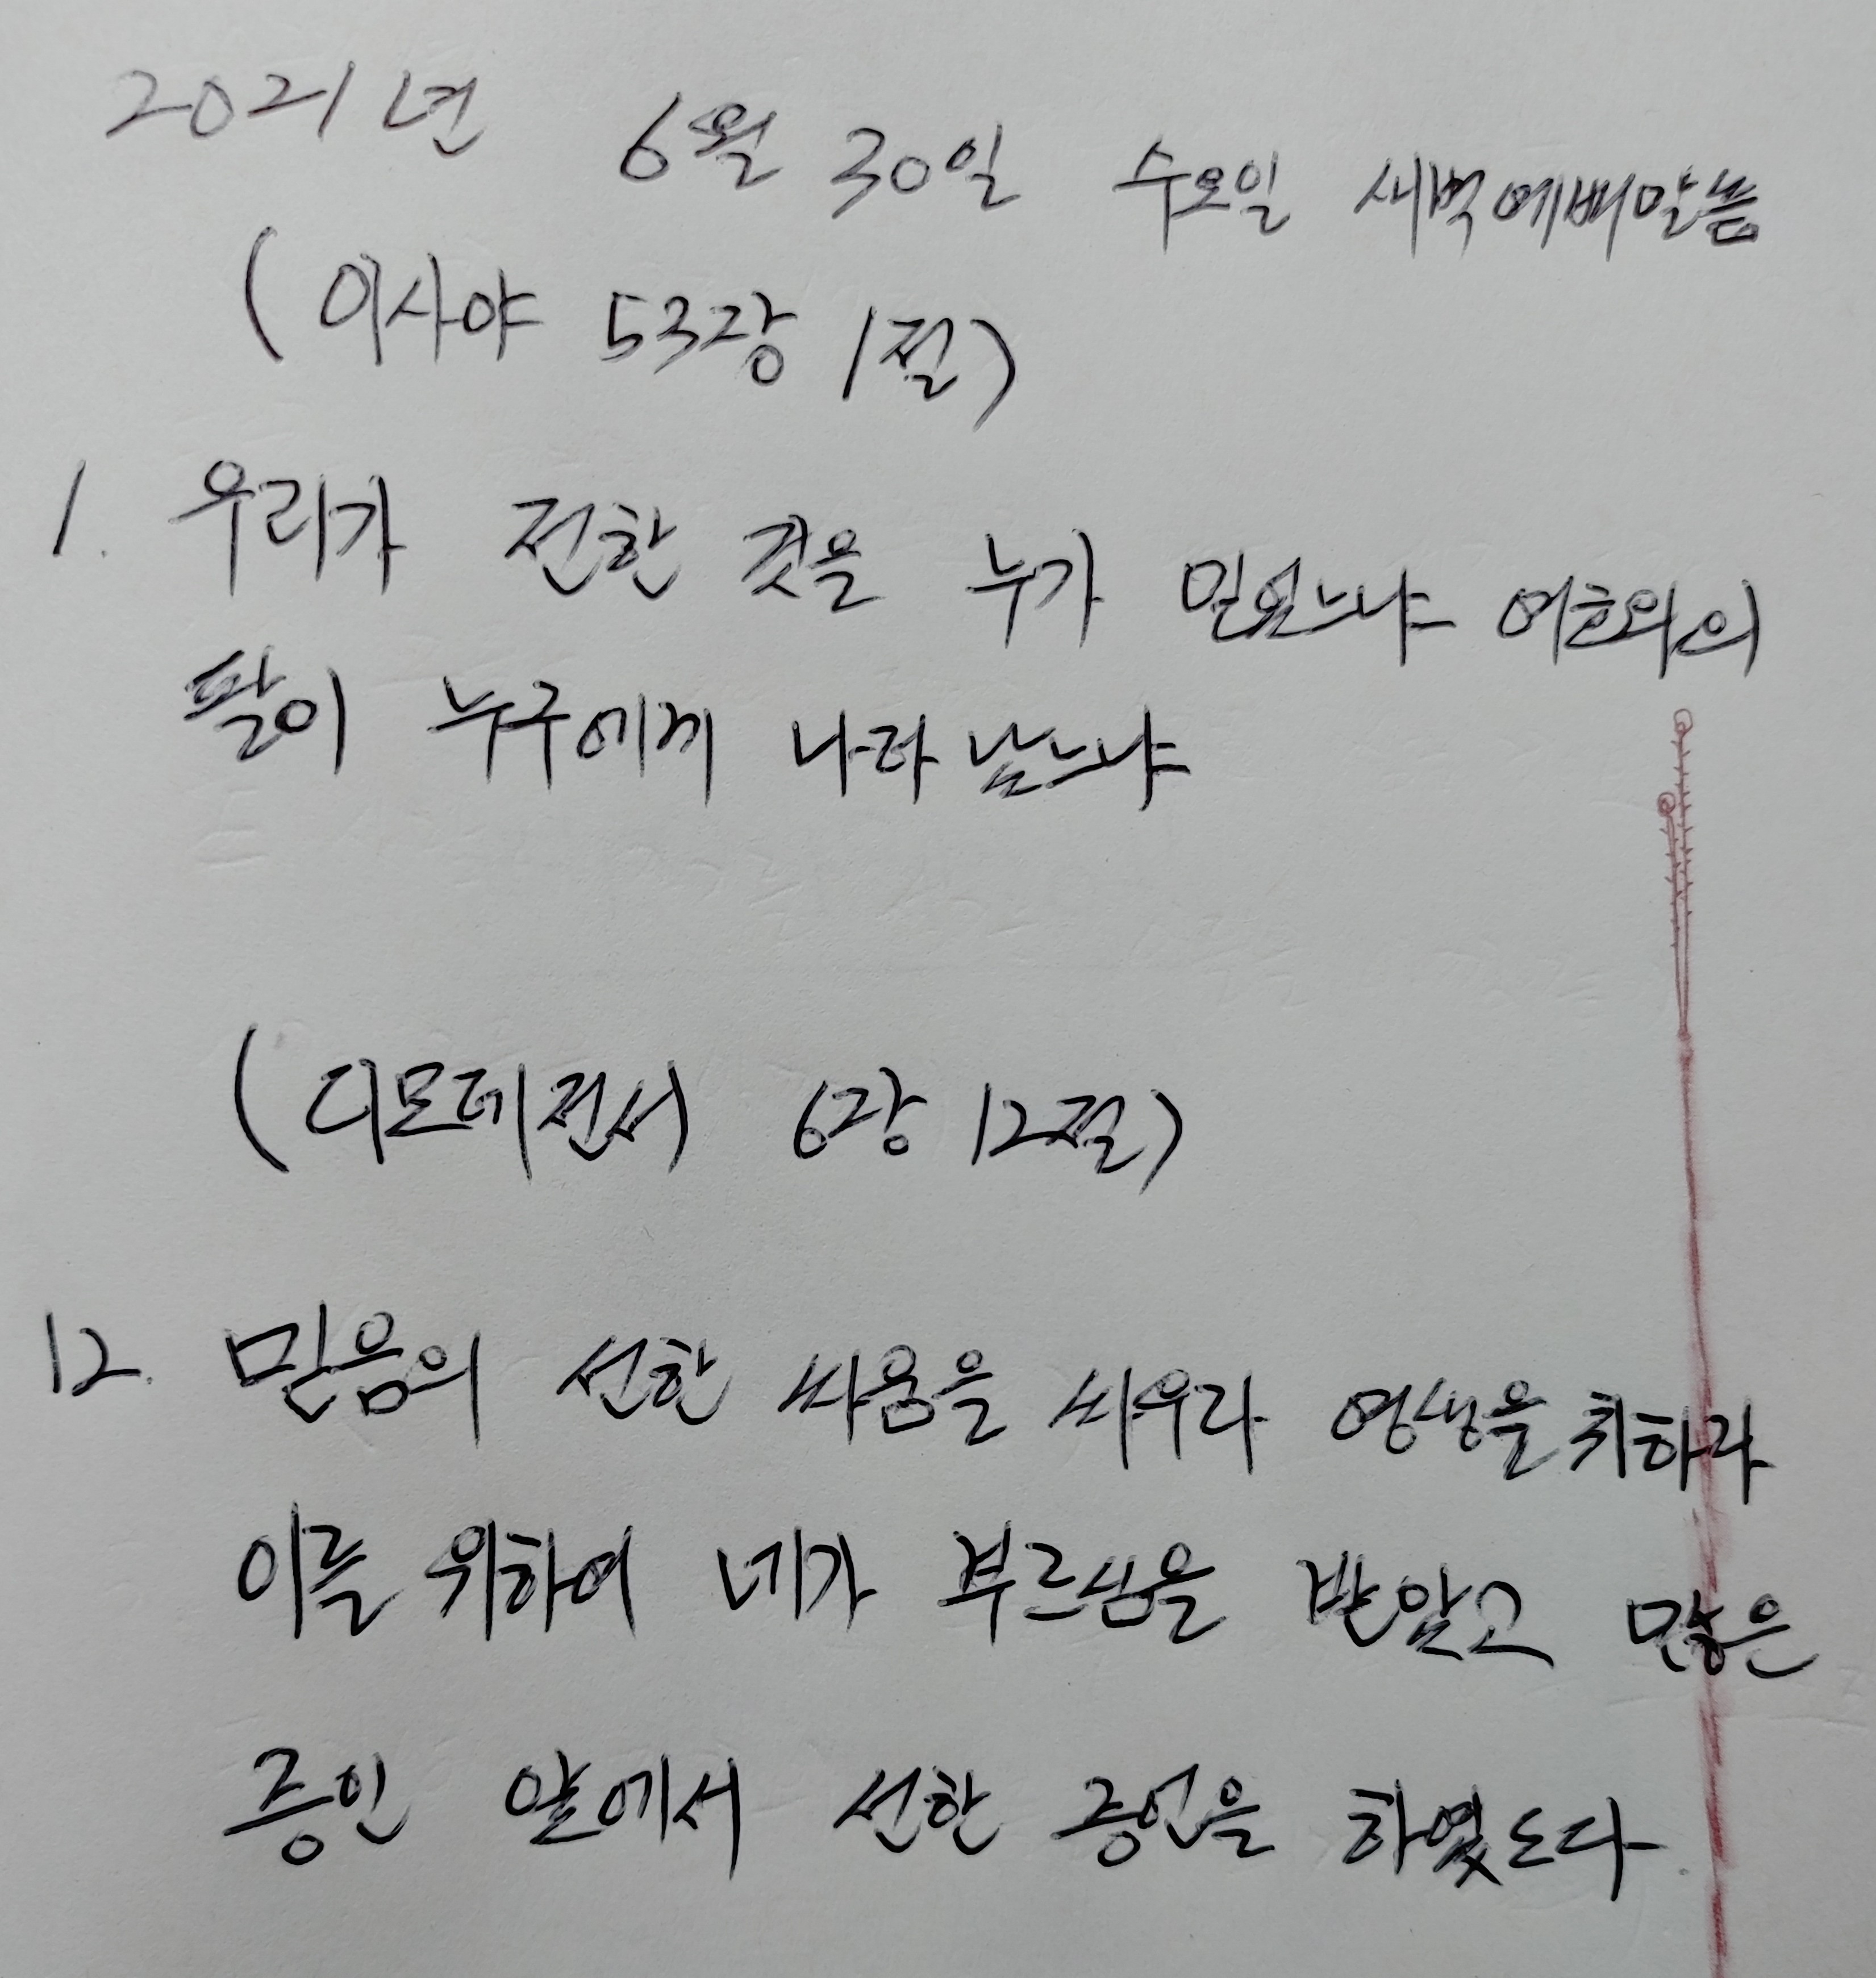 2021년 6월 30일 수요일 새벽예배말씀
(이사야 53장 1절)
1. 우리가 전한 것을 누가 믿었느냐 여호와의
팔이 누구에게 나타났느냐
(디모데전서 6장 12절)
12. 믿음의 선한 싸움을 싸우라 영생을 취하라
이를 위하여 네가 부르심을 받았고 많은
증인 앞에서 선한 증언을 하였도다.